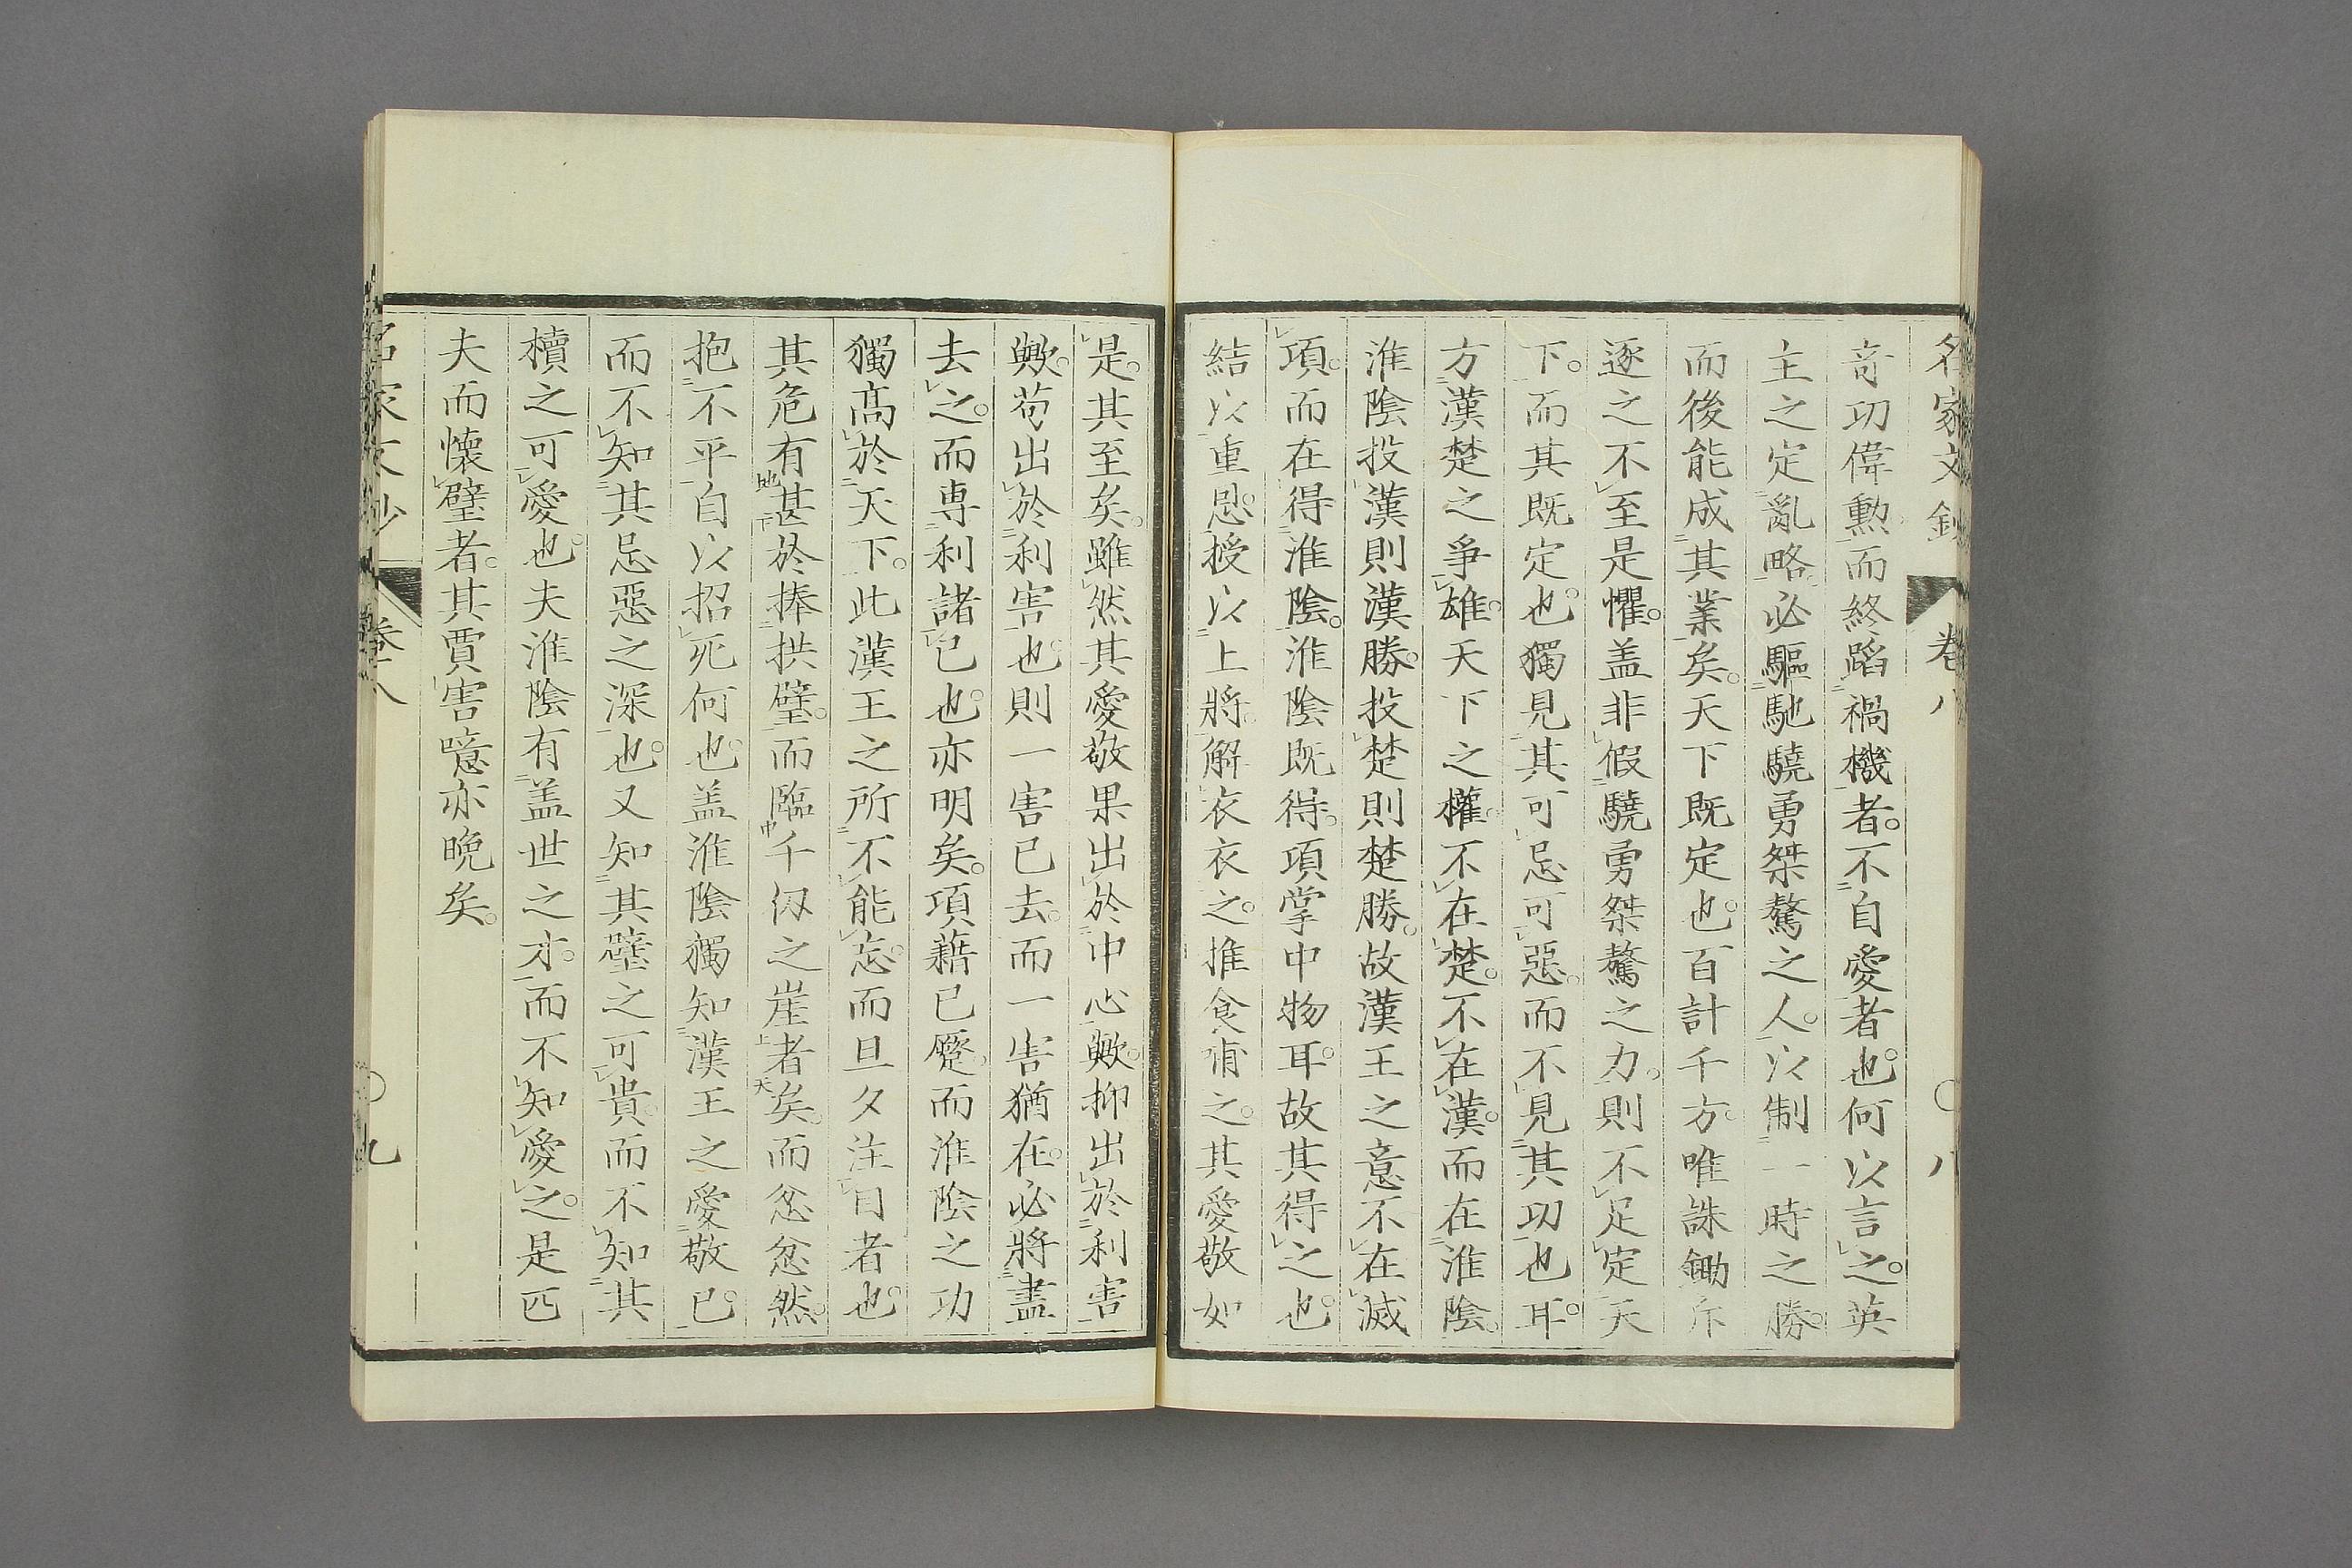 名家文鈔 卷八 〇 八
奇功偉勲而終蹈禍機者。不自愛者也。何以言之。英
主之定亂略。必驅馳驍勇桀驁之人。以制一時之勝。
而後能成其業矣。天下既定也。百計千方。唯誅鋤斥
逐之不至是懼。盖非假驍勇桀驁之力。則不足定天
下。而其既定也。獨見其可忌可惡。而不見其功也耳。
方漢楚之爭雄。天下之權。不在楚。不在漢。而在淮陰。
淮陰投漢則漢勝。投楚則楚勝。故漢王之意不在滅
項。而在得淮陰。淮陰既得。項掌中物耳。故其得之也。
結以重恩。授以上將。解衣衣之。推食食之。其愛敬如
是。其至矣。雖然其愛敬果出於中心歟。抑出於利害
歟。苟出於利害也。則一害已去。而一害猶在。必將盡
去之。而専利諸己也。亦明矣。項藉已蹙。而淮陰之功
獨髙於天下。此漢王之所不能忘。而旦夕注目者也。
其危有甚於捧拱璧。而臨千仭之崖者矣。而忿忿然。
抱不平自以招死何也。盖淮陰獨知漢王之愛敬已。
而不知其忌惡之深也。又知其璧之可貴。而不知其
櫝之可愛也。夫淮陰有盖世之才。而不知愛之。是匹
夫而懷璧者。其賈害噫亦晩矣。
名家文鈔 卷八 〇 九